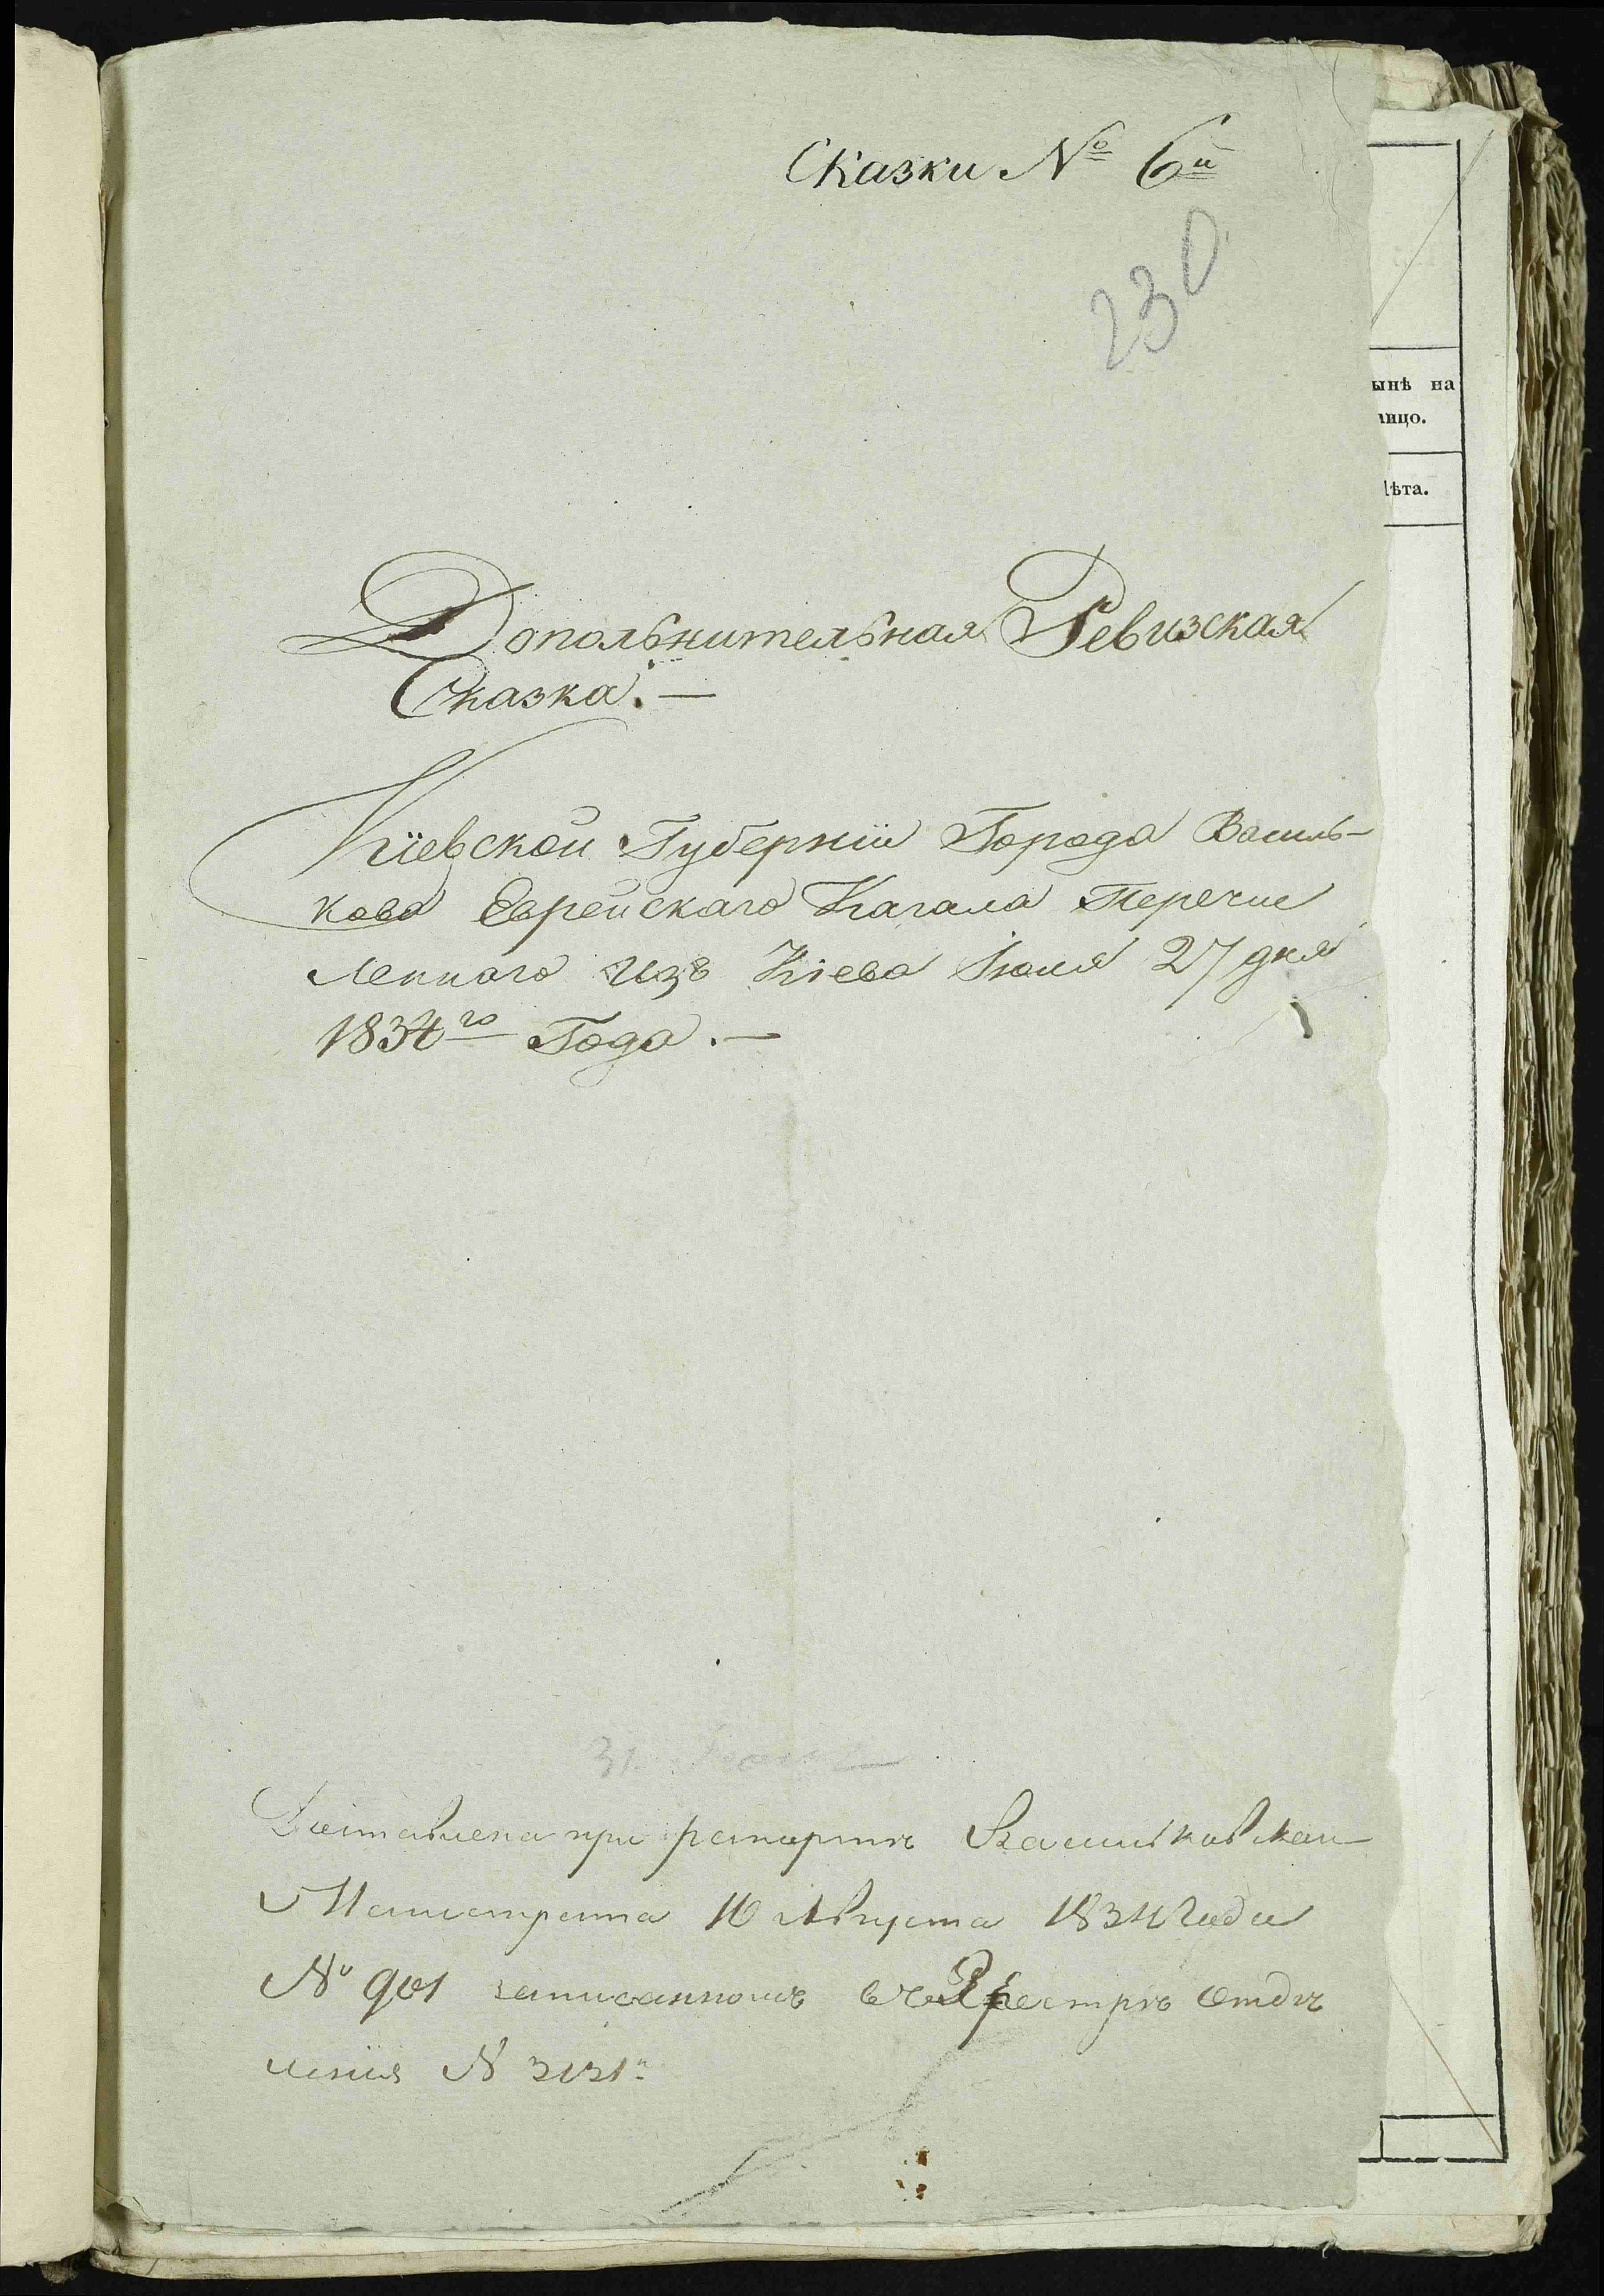 Сказки № 6й
230
ынѣ на
лицо.
Лѣта.
Допольнительная Ревизская
Сказка.—
Кіевской Губерніи Города Василь-
кова Еврейскаго Кагала Перечис
леннаго изъ Кіева Іюля 27 дня
1834го Года.—
31
Доставлена при рапортѣ Васильковскаго
Магистрата 10 Августа 1834 Года
№ 901 записанномъ въ Реестръ Отдѣ
ленія № 3131й